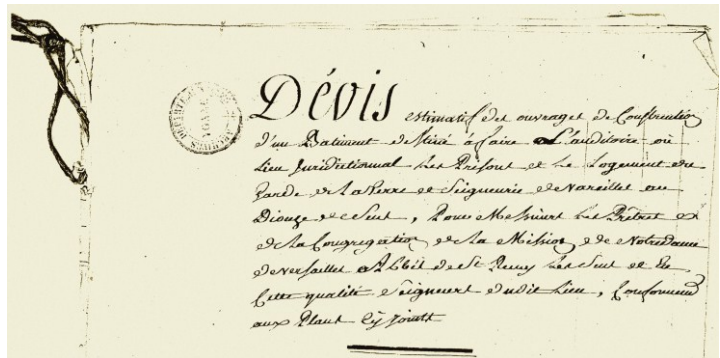 Dévis estimatif des ouvrages de Construction
d'un Batiment destiné à faire L'auditoire ou
Lieu Jurisdictionnal Les Prisons et Le Logement du
garde de La Terre et Seigneurie de Vareilles au
Diouze de Sens, Pour Messieurs Les Prêtres
de La Congregation de La Mission de Notredame
de Versailles Abbés de St Remy Les Sens et En
Cette qualité Seigneurs dudit Lieu, Conformement
aux Plans Cy joints
ARCHIVES YONNE